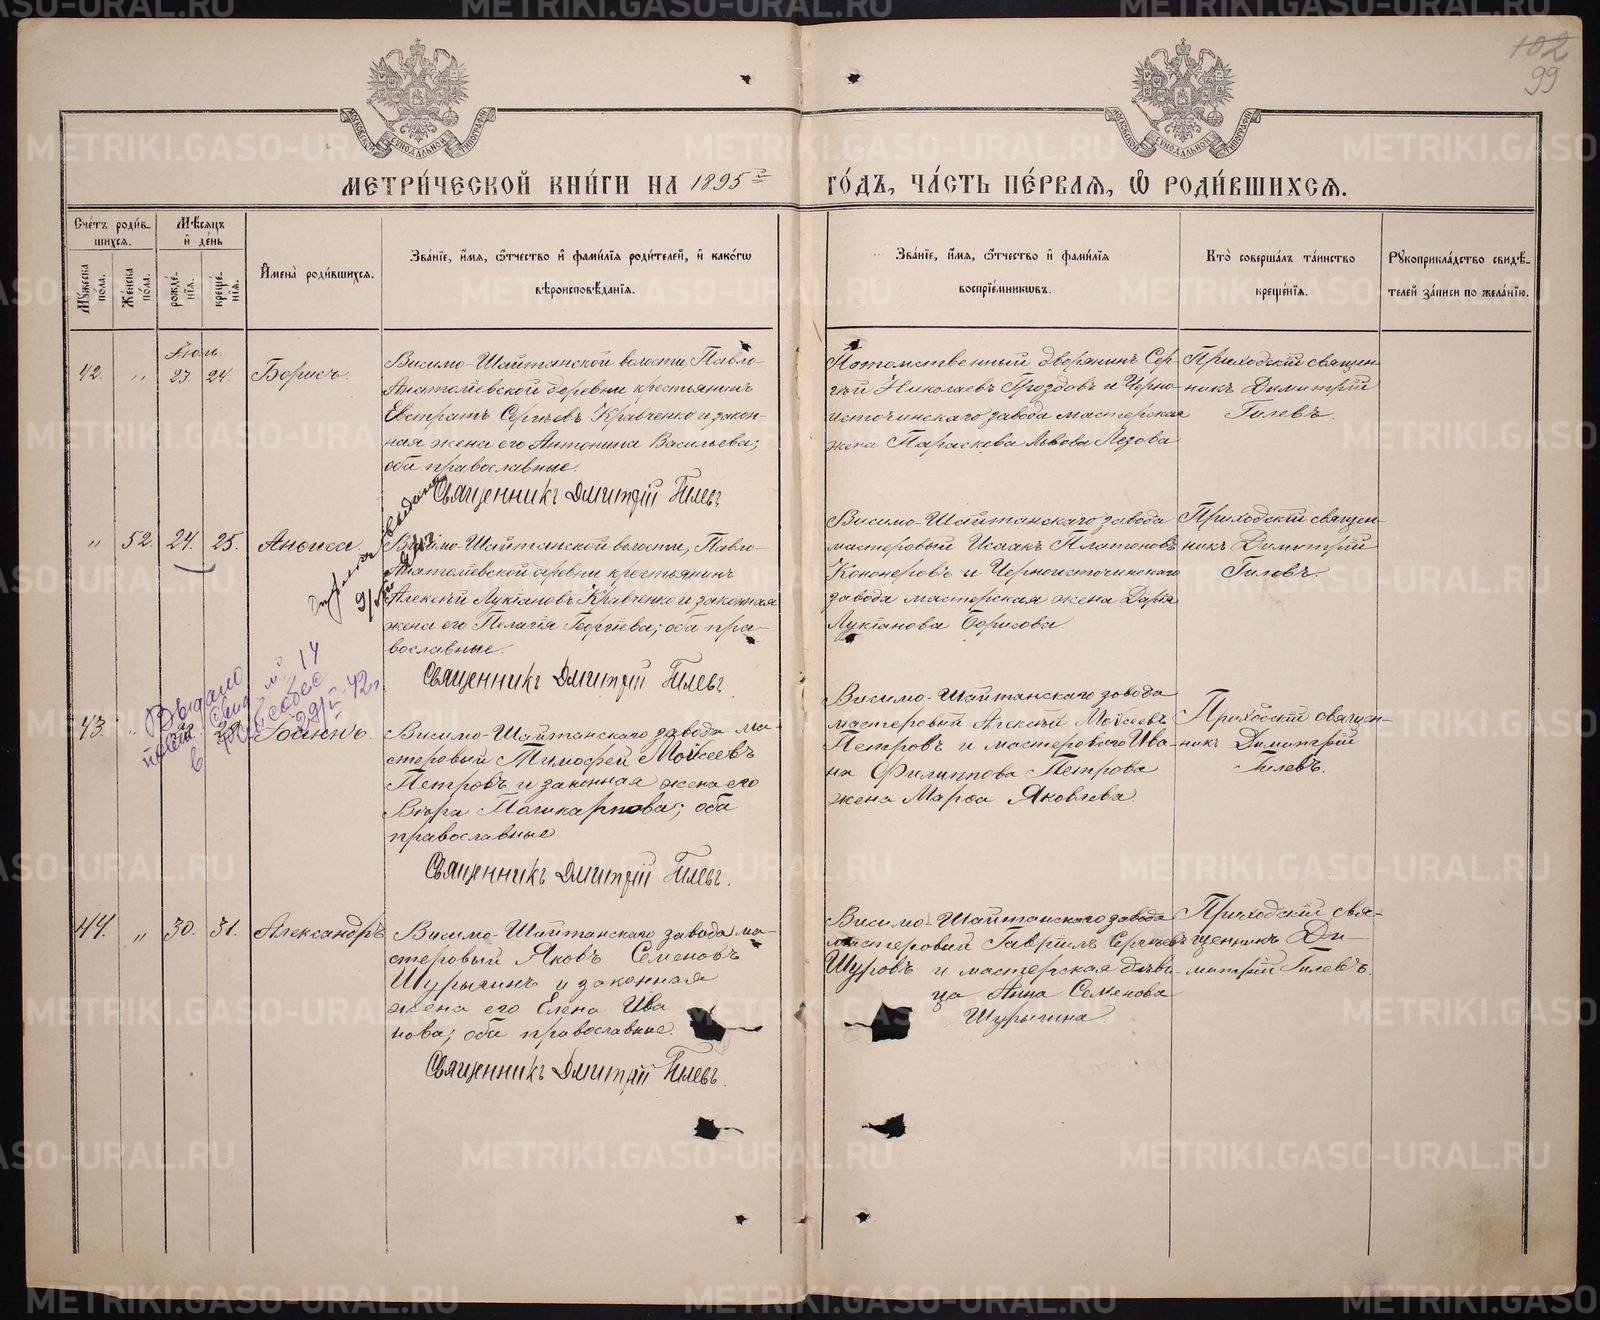 102
99
МОСКОВСКОЙ СѴНОДАЛЬНОЙ ТИПОГРАФІИ
МОСКОВСКОЙ СѴНОДАЛЬНОЙ ТИПОГРАФІИ
МЕТРИ́ЧЕСКОЙ КНИ́ГИ НА 1895 й
ГО́ДЪ, ЧА́СТЬ ПЕ́РВАЯ, Ѽ РОДИ́ВШИХСЯ.
Сче́тъ роди́в-
шихся.
Мѣсяцъ
и де́нь
Мꙋжеска по́ла.
Же́нска по́ла.
рожде́нїя.
креще́нїя.
И̓мена̀ роди́вшихся.
Зва́нїе, и́мя, ѻ҆́тчество и҆ фами́лїя роди́телей, и҆ како́гѡ
вѣроисповѣ́данїя.
Зва́нїе, и́мя, ѻ҆́тчество и҆ фами́лїя
воспрїе́мникѡвъ.
Кто̀ соверша́лъ та́инство
креще́нїя.
Рꙋкоприкла́дство свидѣ́-
телей за́писи по жела́нїю.
Іюль
42. " 23. 24. Борисъ.
Висимо-Шайтанской волости, Павло-
Анатолѣевской деревни крестьянинъ
Евстратъ Сергѣевъ Кравченко и закон-
ная жена его Антонина Васильева;
оба православные.
Священникъ Дмитрій Гилевъ
Потомственный дворянинъ Сер-
гѣй Николаевъ Гроздовъ и Черно-
источинскаго завода мастерская
жена Параскева Львова Лезова
Приходскій священ-
никъ Димитрій
Гилевъ.
" 52. 24. 25. Анѳиса.
Висимо-Шайтанской волости, Павло-
Анатолѣевской деревни крестьянинъ
Алексѣй Лукіановъ Кравченко и законная
жена его Пелагія Георгіева; оба пра-
вославные.
Священникъ Дмитрій Гилевъ.
Висимо-Шайтанскаго завода
мастеровый Исаакъ Платоновъ
Кононеровъ и Черноисточинскаго
завода мастерская жена Дарія
Лукіанова Борисова
Приходскій священ-
никъ Димитрій
Гилевъ.
Выдано
14
42 г
43. " Іоаннъ.
Висимо-Шайтанскаго завода ма-
стеровый Тимофей Моѵсеевъ
Петровъ и законная жена его
Вѣра Поликарпова; оба
православные
Священникъ Дмитрій Гилевъ.
Висимо-Шайтанскаго завода
мастеровый Алексѣй Моѵсеевъ
Петровъ и мастероваго Ива-
на Филиппова Петрова
жена Марѳа Яковлева.
Приходскій священ-
никъ Димитрій
Гилевъ.
44. " 30. 31. Александръ
Висимо-Шайтанскаго завода ма-
стеровый Яковъ Семеновъ
Шурыгинъ и законная
жена его Елена Ива
нова; оба православные.
Священникъ Дмитрій Гилевъ.
Висимо-Шайтанскаго завода
мастеровый Гавріилъ Сергѣевъ
Шуровъ и мастерская дѣви-
ца Анна Семенова
Шурыгина.
Приходскій свя-
щенникъ Ди-
митрій Гилевъ.
METRIKI.GASO-URAL.RU